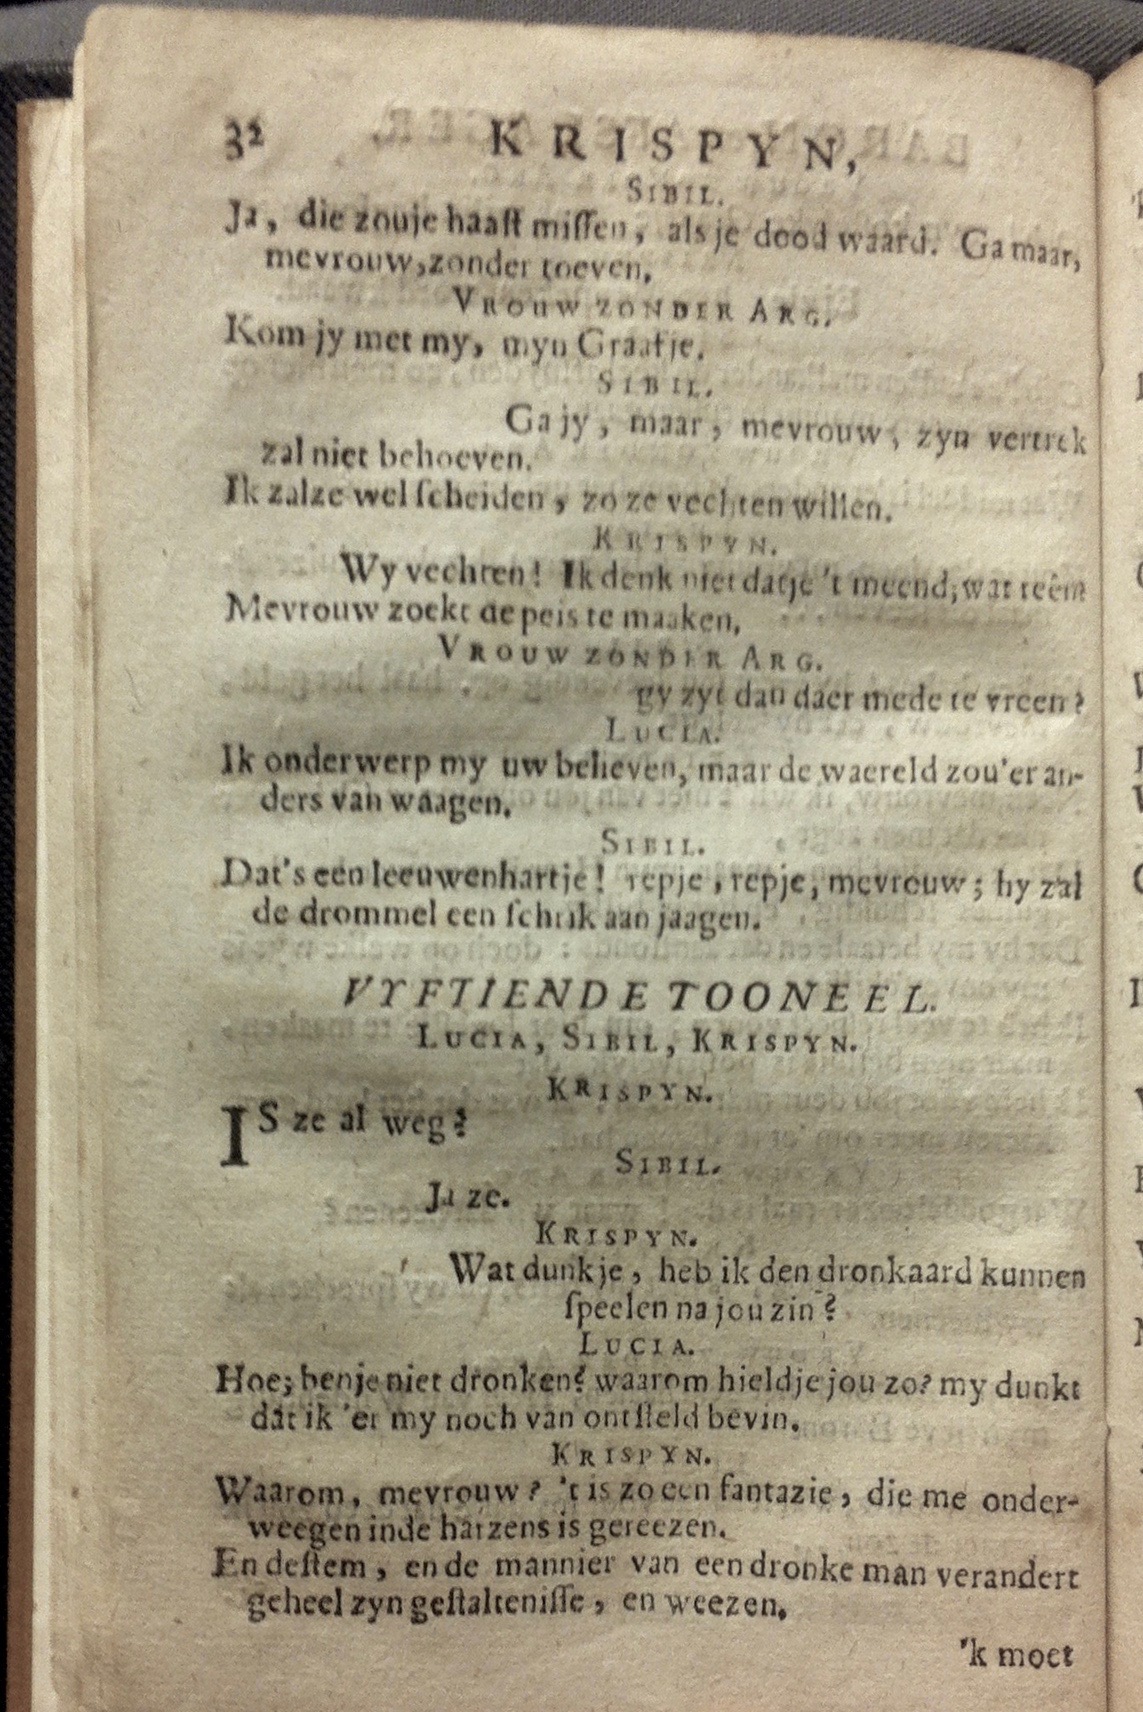 32 KRISPYN,
SIBIL.
Ja, die zouje haaſt miſſen, als je dood waard. Ga maar,
mevrouw, zonder toeven.
VROUW ZONDER ARG.
Kom jy met my, myn Graafje.
SIBIL.
Ga jy, maar, mevrouw, zyn vertrek
zal niet behoeven.
Ik zalze wel ſcheiden, zo ze vechten willen.
KRISPYN.
Wy vechten! Ik denk niet datje 't meend; wat reên
Mevrouw zoekt de peis te maaken.
VROUW ZONDER ARG.
gy zyt dan daer mede te vreen?
LUCIA.
Ik onderwerp my uw believen, maar de waereld zou'er an-
ders van waagen.
SIBIL.
Dat's een leeuwenhartje! repje, repje, mevrouw; hy zal
de drommel een ſchrik aan jaagen.
VYFTIENDE TOONEEL.
LUCIA, SIBIL, KRISPYN.
KRISPYN.
IS ze al weg?
SIBIL.
Ja ze.
KRISPYN.
Wat dunkje, heb ik den dronkaard kunnen
ſpeelen na jou zin?
LUCIA.
Hoe; benje niet dronken? waarom hieldje jou zo? my dunkt
dat ik 'er my noch van ontſteld bevin.
KRISPYN.
Waarom, mevrouw? 't is zo een fantazie, die me onder-
weegen inde harzens is gereezen.
En de ſtem, en de mannier van een dronke man verandert
geheel zyn geſtalteniſſe, en weezen.
'k moet